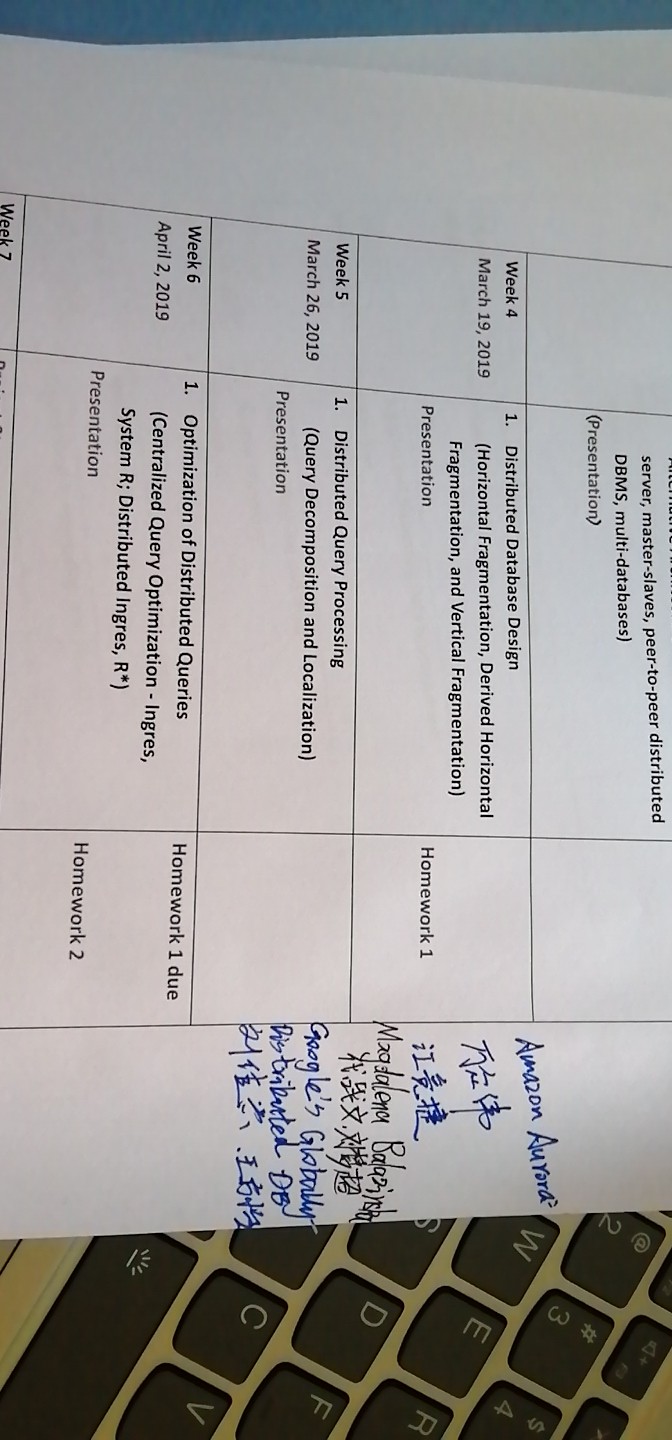 server, master-slaves, peer-to-peer distributed
DBMS, multi-databases)
(Presentation)
Week 4
March 19, 2019
1. Distributed Database Design
(Horizontal Fragmentation, Derived Horizontal
Fragmentation, and Vertical Fragmentation)
Presentation
Homework 1
Week 5
March 26, 2019
1. Distributed Query Processing
(Query Decomposition and Localization)
Presentation
Week 6
April 2, 2019
1. Optimization of Distributed Queries
(Centralized Query Optimization - Ingres,
System R; Distributed Ingres, R*)
Presentation
Homework 1 due
Homework 2
Week 7
Amazon Aurora
Magdalena
Google's Globally
Distributed DB
@
2
#
3
$
4
W
E
R
S
D
F
C
V